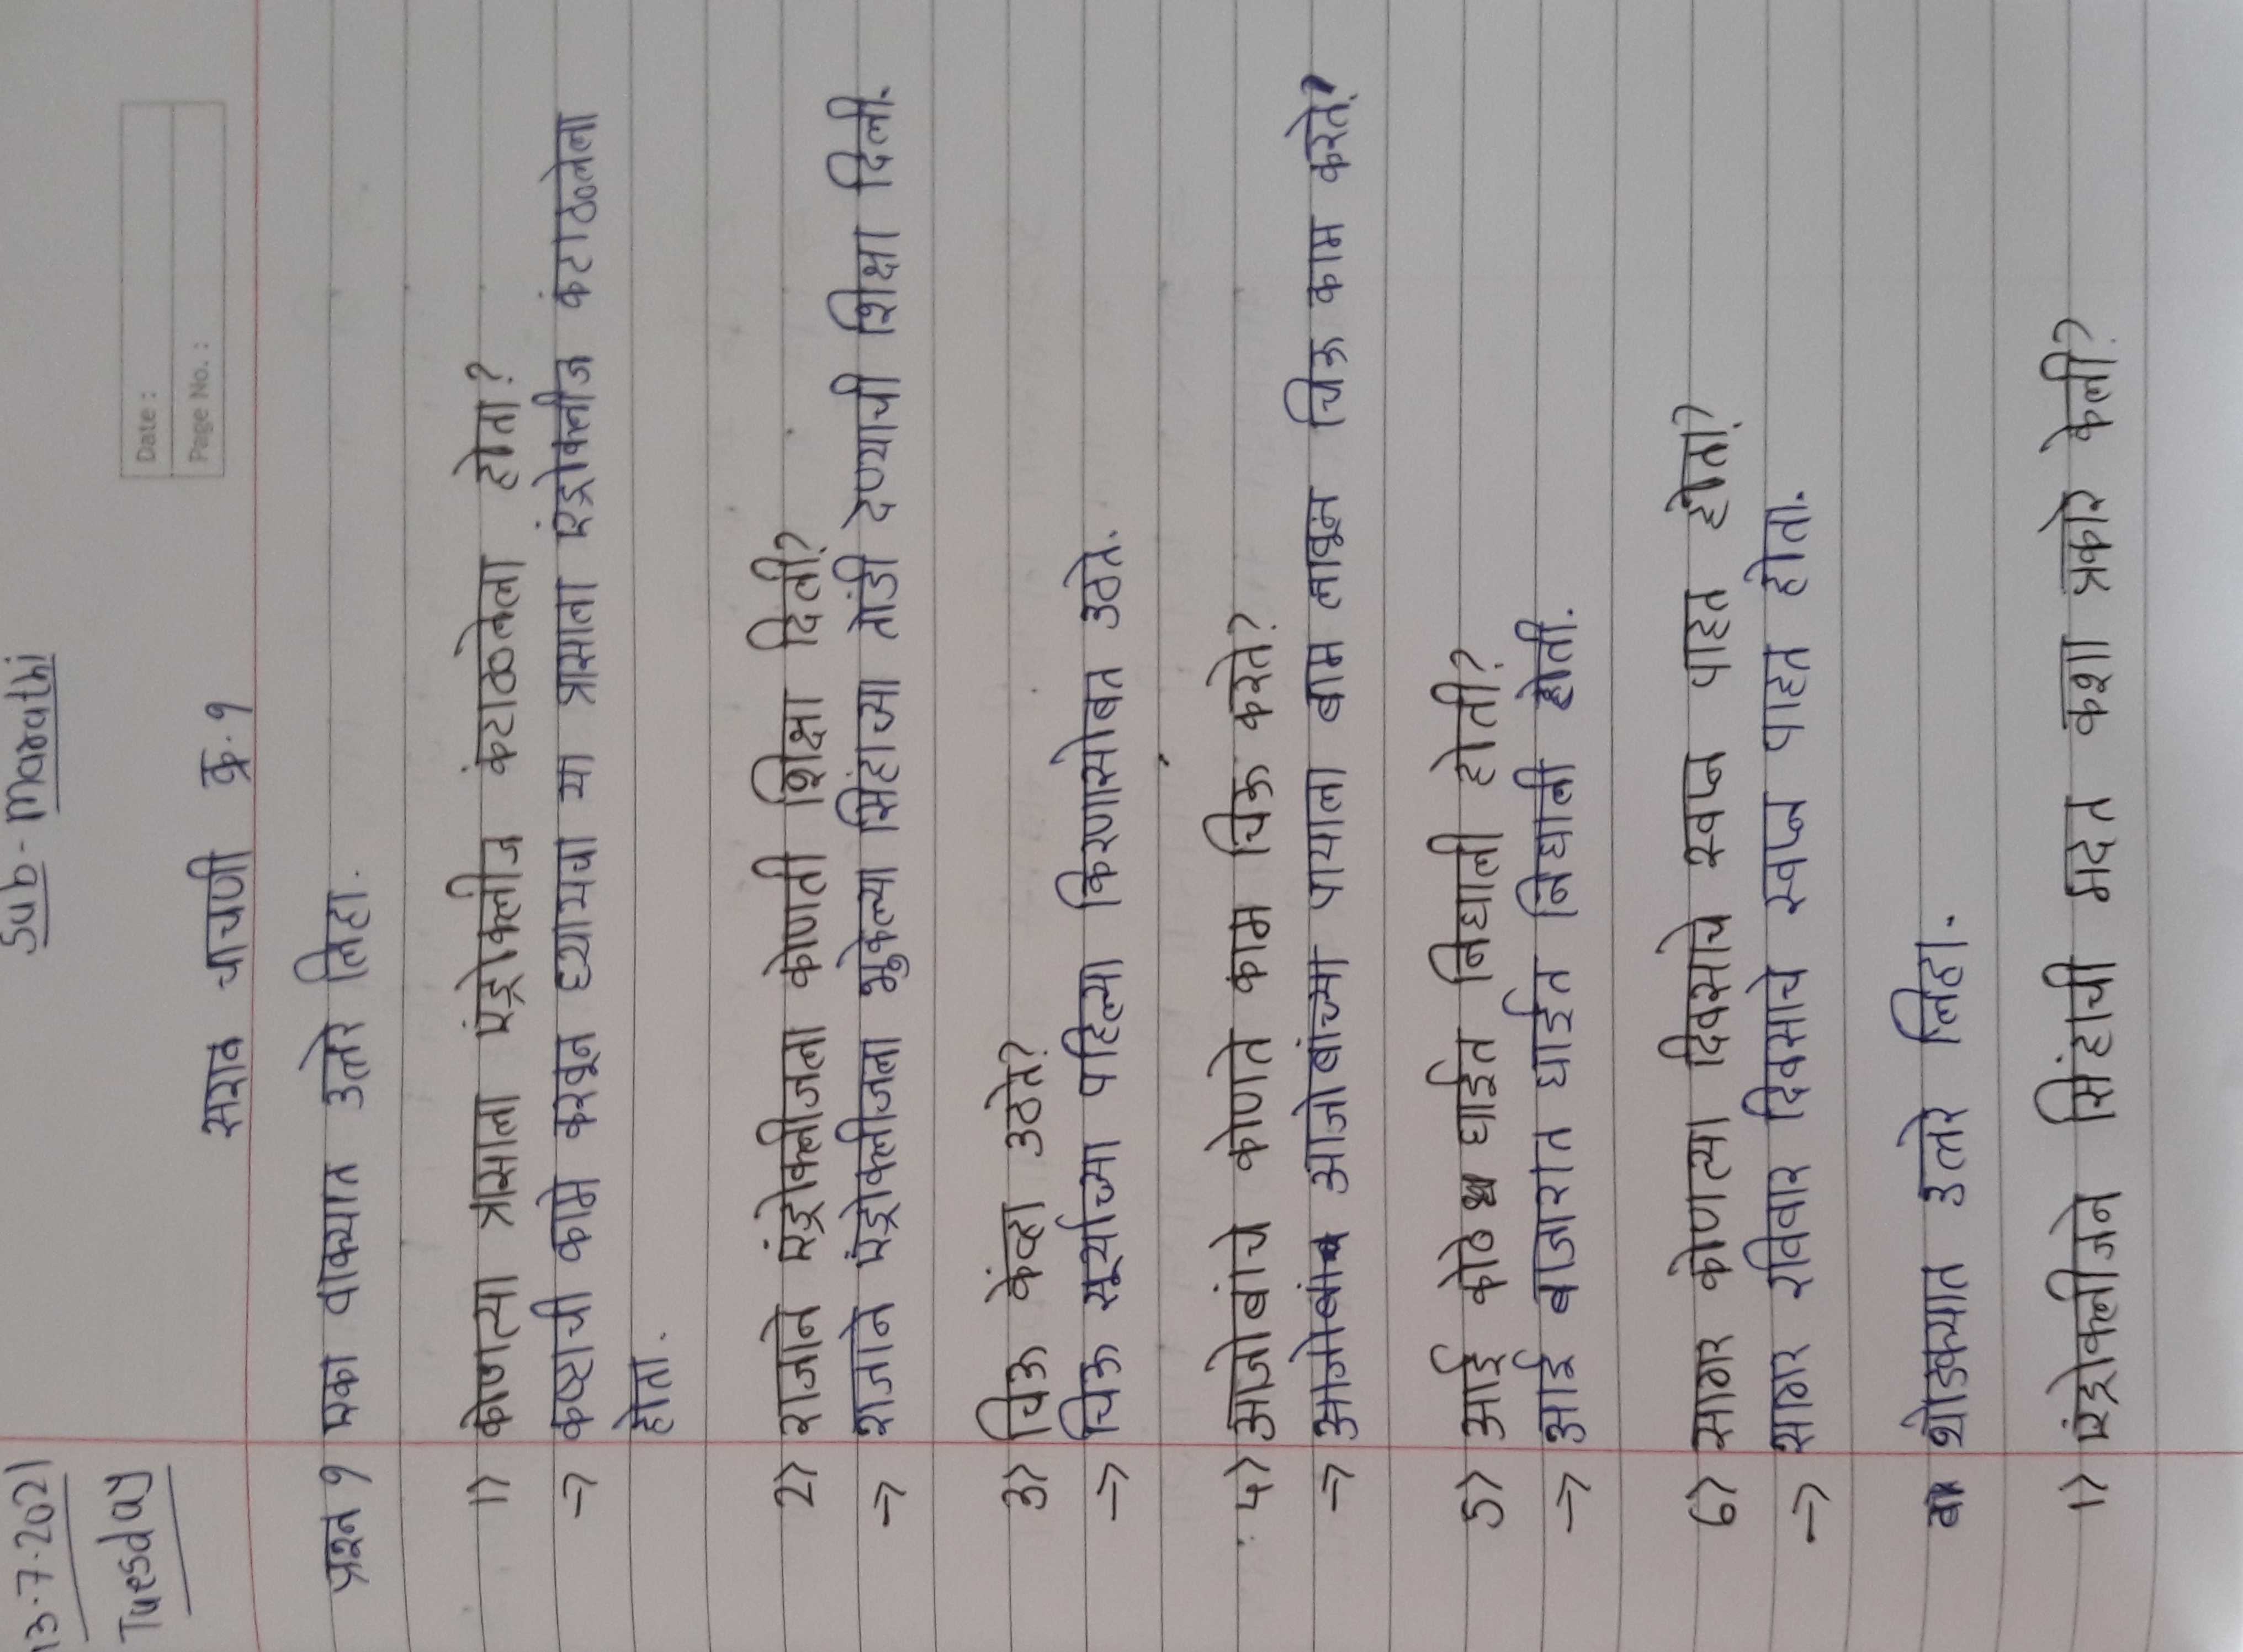 13.7.2021
Sub - Marathi
Tuesday
Date :
Page No. :
सराव चाचणी क्र. १
प्रश्न १ एका वाक्यात उत्तरे लिहा.
1) कोणत्या त्रासाला एंड्रोक्लीज कंटाळलेला होता?
→ कष्टाची कामे करवून घ्यायचा या त्रासाला एंड्रोक्लीज कंटाळलेला
होता.
2) राजाने एंड्रोक्लीजला कोणती शिक्षा दिली?
→ राजाने एंड्रोक्लीजला भुकेल्या सिंहाच्या तोंडी देण्याची शिक्षा दिली.
3) चिऊ केंव्हा उठते?
→ चिऊ सूर्याच्या पहिल्या किरणासोबत उठते.
4) आजोबांचे कोणते काम चिऊ करते?
→ आजोबांच्या पायाला बाम लावून चिऊ काम करते?
5) आई कोठे घाईत निघाली होती?
→ आई बाजारात घाईत निघाली होती.
6) सागर कोणत्या दिवसाचे स्वप्न पाहत होता?
→ सागर रविवार दिवसाचे स्वप्न पाहत होता.
ब थोडक्यात उत्तरे लिहा.
1) एंड्रोक्लीजने सिंहाची मदत कशा प्रकारे केली?